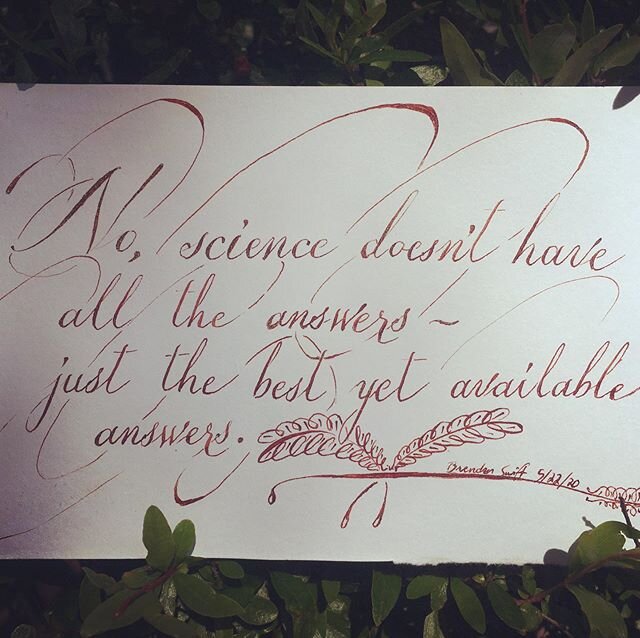 No, science doesn't have
all the answers ~
just the best yet available
answers.
Brenden Swift 5/22/20